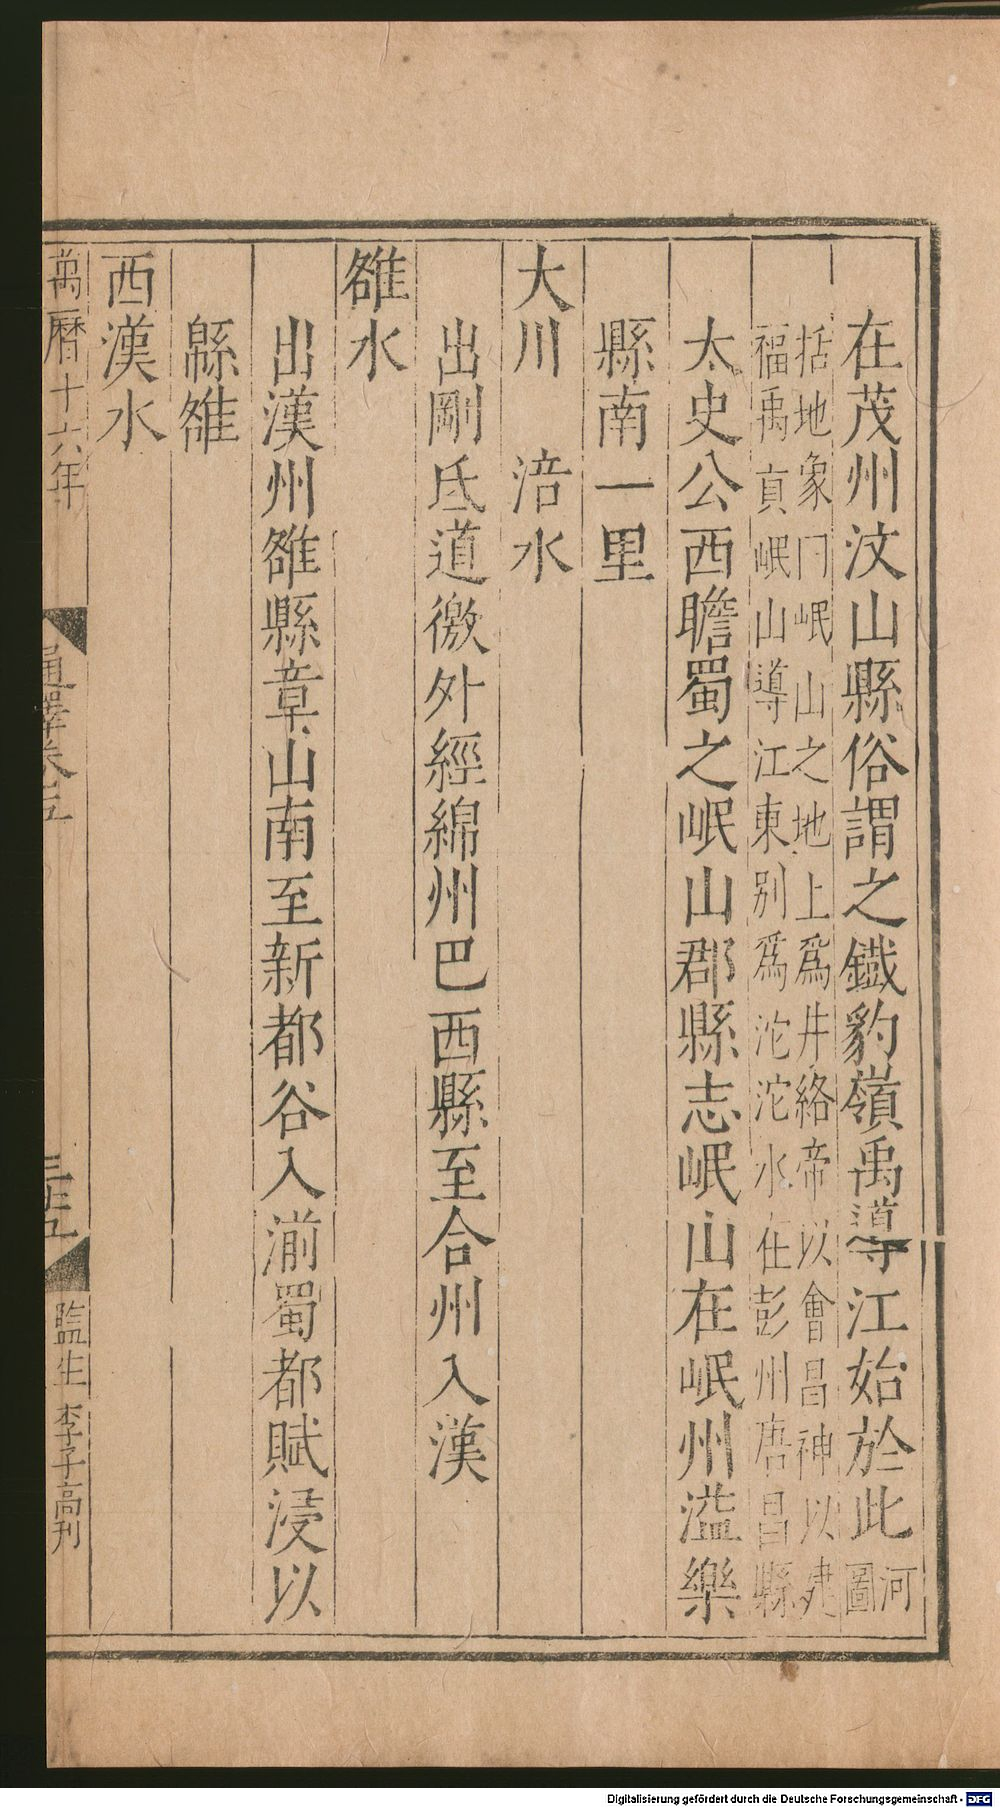 在茂州汶山縣俗謂之鐵豹嶺禹導江始於此河圖
括地象曰岷山之地上為井絡帝以會昌神以建
福禹貢岷山導江東別為沱沱水在彭州唐昌縣
太史公西瞻蜀之岷山郡縣志岷山在岷州溢樂
縣南一里
大川　涪水
出剛氐道徼外經綿州巴西縣至合州入漢
雒水
出漢州雒縣章山南至新都谷入湔蜀都賦浸以
緜雒
西漢水
萬曆十六年
通釋卷五
三十五
監生李子高刊
Digitalisierung gefördert durch die Deutsche Forschungsgemeinschaft - DFG